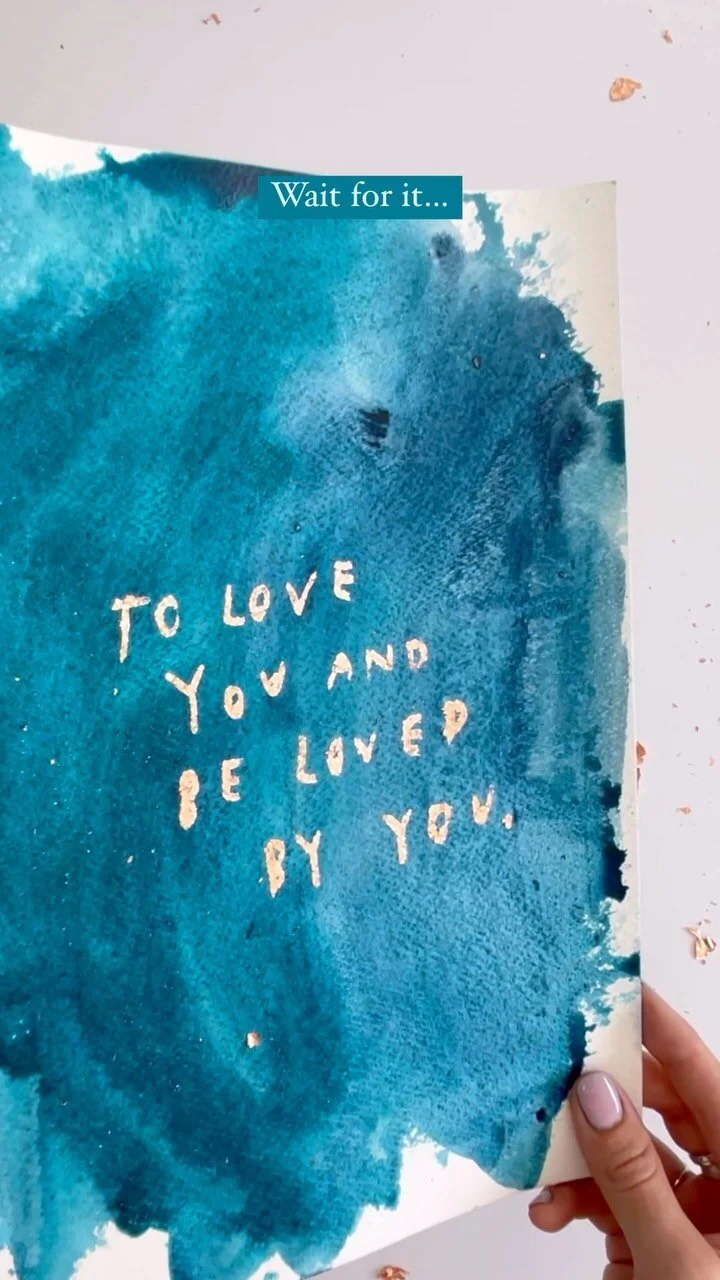 Wait for it...
TO LOVE
YOU AND
BE LOVED
BY YOU.